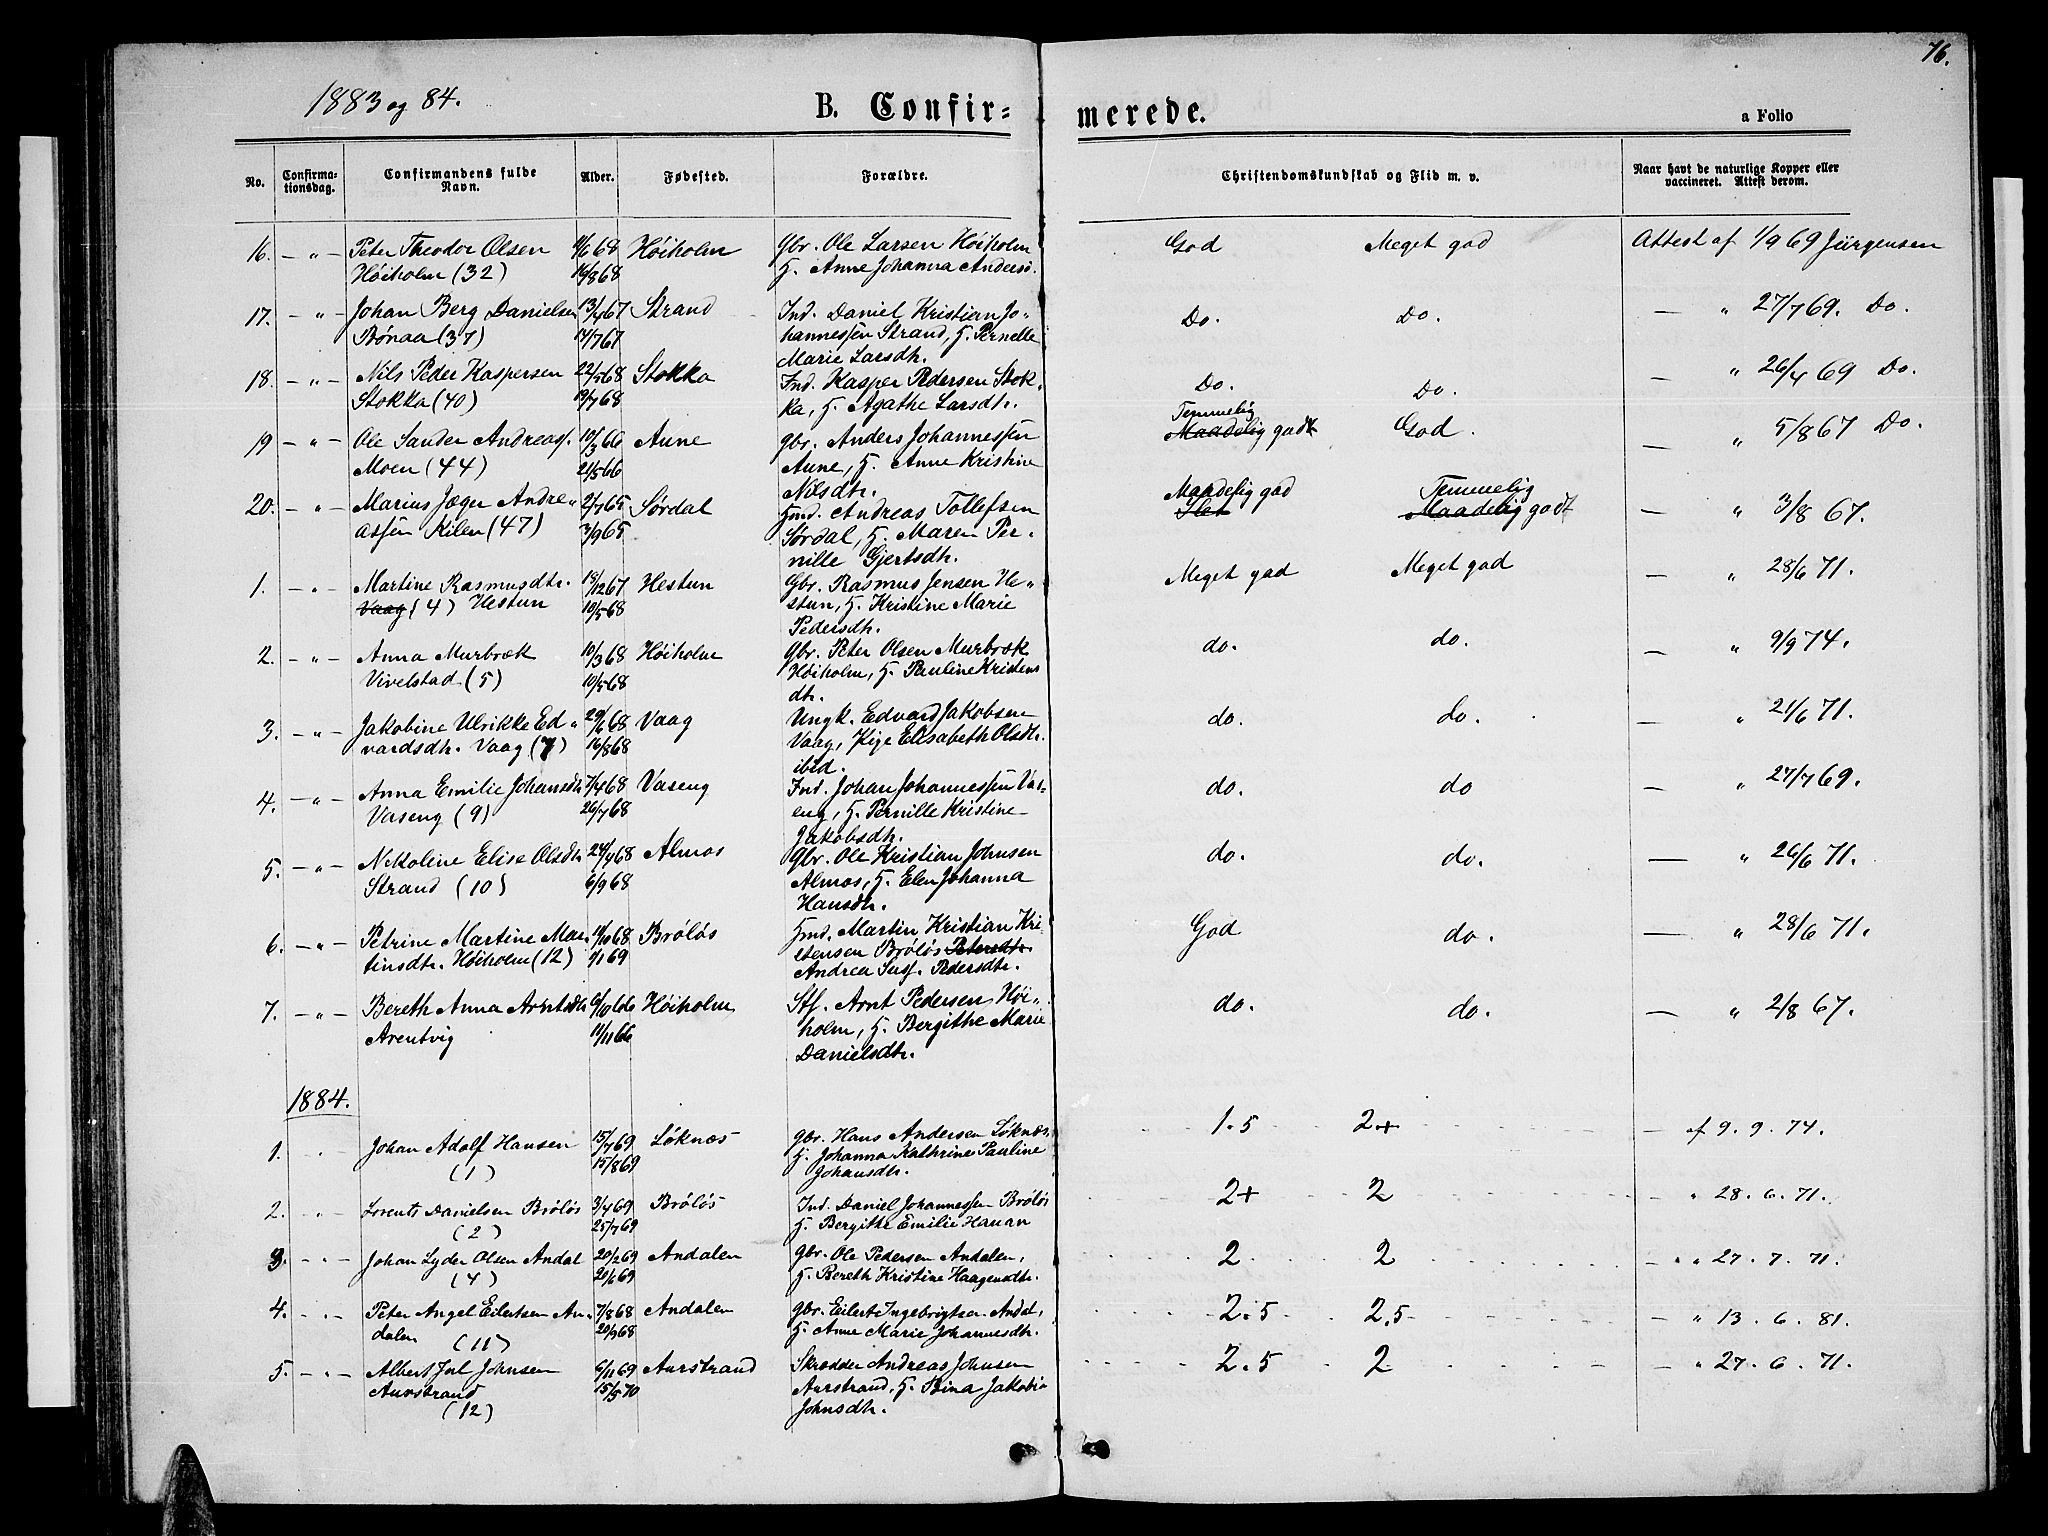 76.
1883 og 84.
B. Confir=
merede.
a Folio
No.
Confirma-
tionsdag.
Confirmandens fulde
Navn.
Alder.
Fødested.
Forældre.
Christendomskundskab og Flid m. v.
Naar havt de naturlige Kopper eller
vaccineret. Attest derom.
16. – „ – Peter Theodor Olsen 11/6 68 Høiholm Gbr. Ole Larsen Høiholm God Meget god Attest af 1/9 69 Jürgensen
Høiholm (32) 19/8 68 H. Anne Johanna Anders.
17. – „ – Johan Berg Danielsen 13/4 67 Strand Ind. Daniel Kristian Jo- Do. Do. – „ 27/7 69. Do.
Bønaa (37) 14/7 67 hannessen Strand, H. Pernelle
Marie Larsdtr.
18. – „ – Nils Peder Kaspersen 22/5 68 Stokka Ind. Kasper Pedersen Stok- Do. Do. – „ 26/4 69 Do.
Stokka (40) 19/7 68 ka, H. Agathe Larsdtr.
19 – „ – Ole Sander Andreass. 10/3 66 Aune Gbr. Anders Johannessen Temmelig Maadelig godt God. – „ 5/8 67 Do.
Moen (44) 21/5 66 Aune, H. Anne Kristine
Nilsdtr.
20. – „ – Marius Jæger Andre- 2/7 65 Sørdal Hmd. Andreas Tollefsen Maadelig god Slet Temmelig Maadelig godt – „ 3/8 67.
assen Kilen (47) 3/9 65 Sørdal, H. Maren Per-
nille Gjertsdtr.
1. – „ – Martine Rasmusdtr. 19/12 67 Hestun Gbr. Rasmus Jensen He- Meget god Meget god – „ 28/6 71.
Vaag (4) Hestun 10/5 68 stun, H. Kristine Marie
Pedersdtr.
2. – „ – Anna Murbræk 10/3 68 Høiholm Gbr. Peter Olsen Murbræk do. do. – „ 9/9 74.
Vivelstad (5) 10/5 68 Høiholm, H. Pauline Kristens
dtr.
3. – „ – Jakobine Ulrikke Ed- 29/6 68 Vaag Ungk. Edvard Jakobsen do. do. – „ 21/6 71.
vardsdtr. Vaag (7) 16/8 68 Vaag, Pige Elisabeth Olsdtr.
ibid.
4. – „ – Anna Emilie Johansdtr 7/4 68 Vaseng Ind. Johan Johannessen Vas- do. do – „ 27/7 69.
Vaseng (9) 26/7 68 eng, H. Pernille Kristine
Jakobsdtr.
5. – „ – Nikoline Elise Olsdtr 24/4 68 Almos Gbr. Ole Kristian Johnsen do. do. – „ 26/6 71.
Strand (10) 6/9 68 Almos, H. Elen Johanna
Hansdtr.
6. – „ – Petrine Martine Mar- 11/10 68 Bröløs Hmd. Martin Kristian Kri God do. – „ 28/6 71.
tinsdtr. Høiholm (12) 1/1 69 stensen Bröløs Petersdtr.
Andrea Sus. Pedersdtr.
7. – „ – Bereth Anna Arntsdtr 6/10 66 Høiholm Stf. Arnt Pedersen Høi- do. do. – „ 2/8 67.
Arentvig 11/11 66 holm, H. Bergithe Marie
Danielsdtr.
1884.
1. „ Johan Adolf Hansen 15/7 69 Løknæs Gbr. Hans Andersen Løknæs, 1.5 2+ – af 9. 9. 74.
(1) 15/8 69 H. Johanna Kathrine Pauline
Johansdtr.
2. „ Lorents Danielsen Bröløs 3/4 69 Bröløs Ind. Daniel Johannessen Bröløs 2+ 2 – „ 28. 6. 71.
(2) 25/7 69 H. Bergithe Emilie Hanan
3. – „ – Johan Lyder Olsen Andal 20/2 69 Andalen Gbr. Ole Pedersen Andalen, 2 2 – „ „ 27. 7. 71.
(4) 20/6 69 H. Bereth Kristine Haagensdtr.
4. – „ – Peter Angel Eilertsen An- 7/8 68 Andalen Gbr. Eilert Ingebrigtsen Andal, 2.5 2.5 – „ 13. 6. 81.
dalen (11) 20/9 68 H. Anne Marie Johannesdtr.
5. – „ – Albert Jul Johnsen 6/11 69 Aurstrand Skrædder Andreas Johnsen 2.5 2 – „ 27. 6. 71.
Aurstrand 15/5 70 Aurstrand, H. Bina Jakobi-
(12) Johnsdtr.